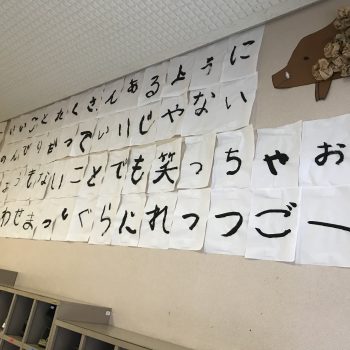 いいことたくさんあるように
のんびりだっていいじゃない
ょうもないことでも笑っちゃお
わせまっしぐらにれっつごー